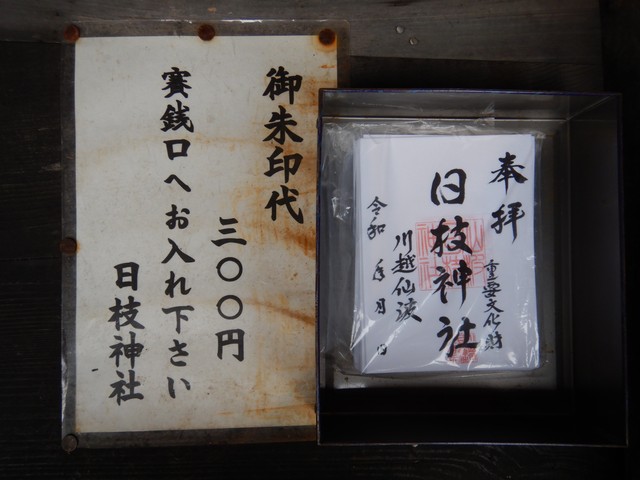 御朱印代
三〇〇円
賽銭口へお入れ下さい
日枝神社
奉拝
重要文化財
日枝神社
川越仙波
令和 年 月 日